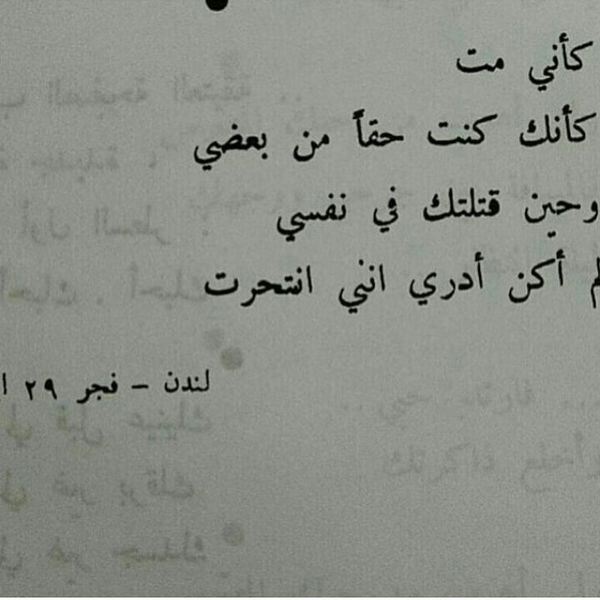 كأني مت
كأنك كنت حقاً من بعضي
وحين قتلتك في نفسي
لم أكن أدري انني انتحرت
لندن – فجر ٢٩